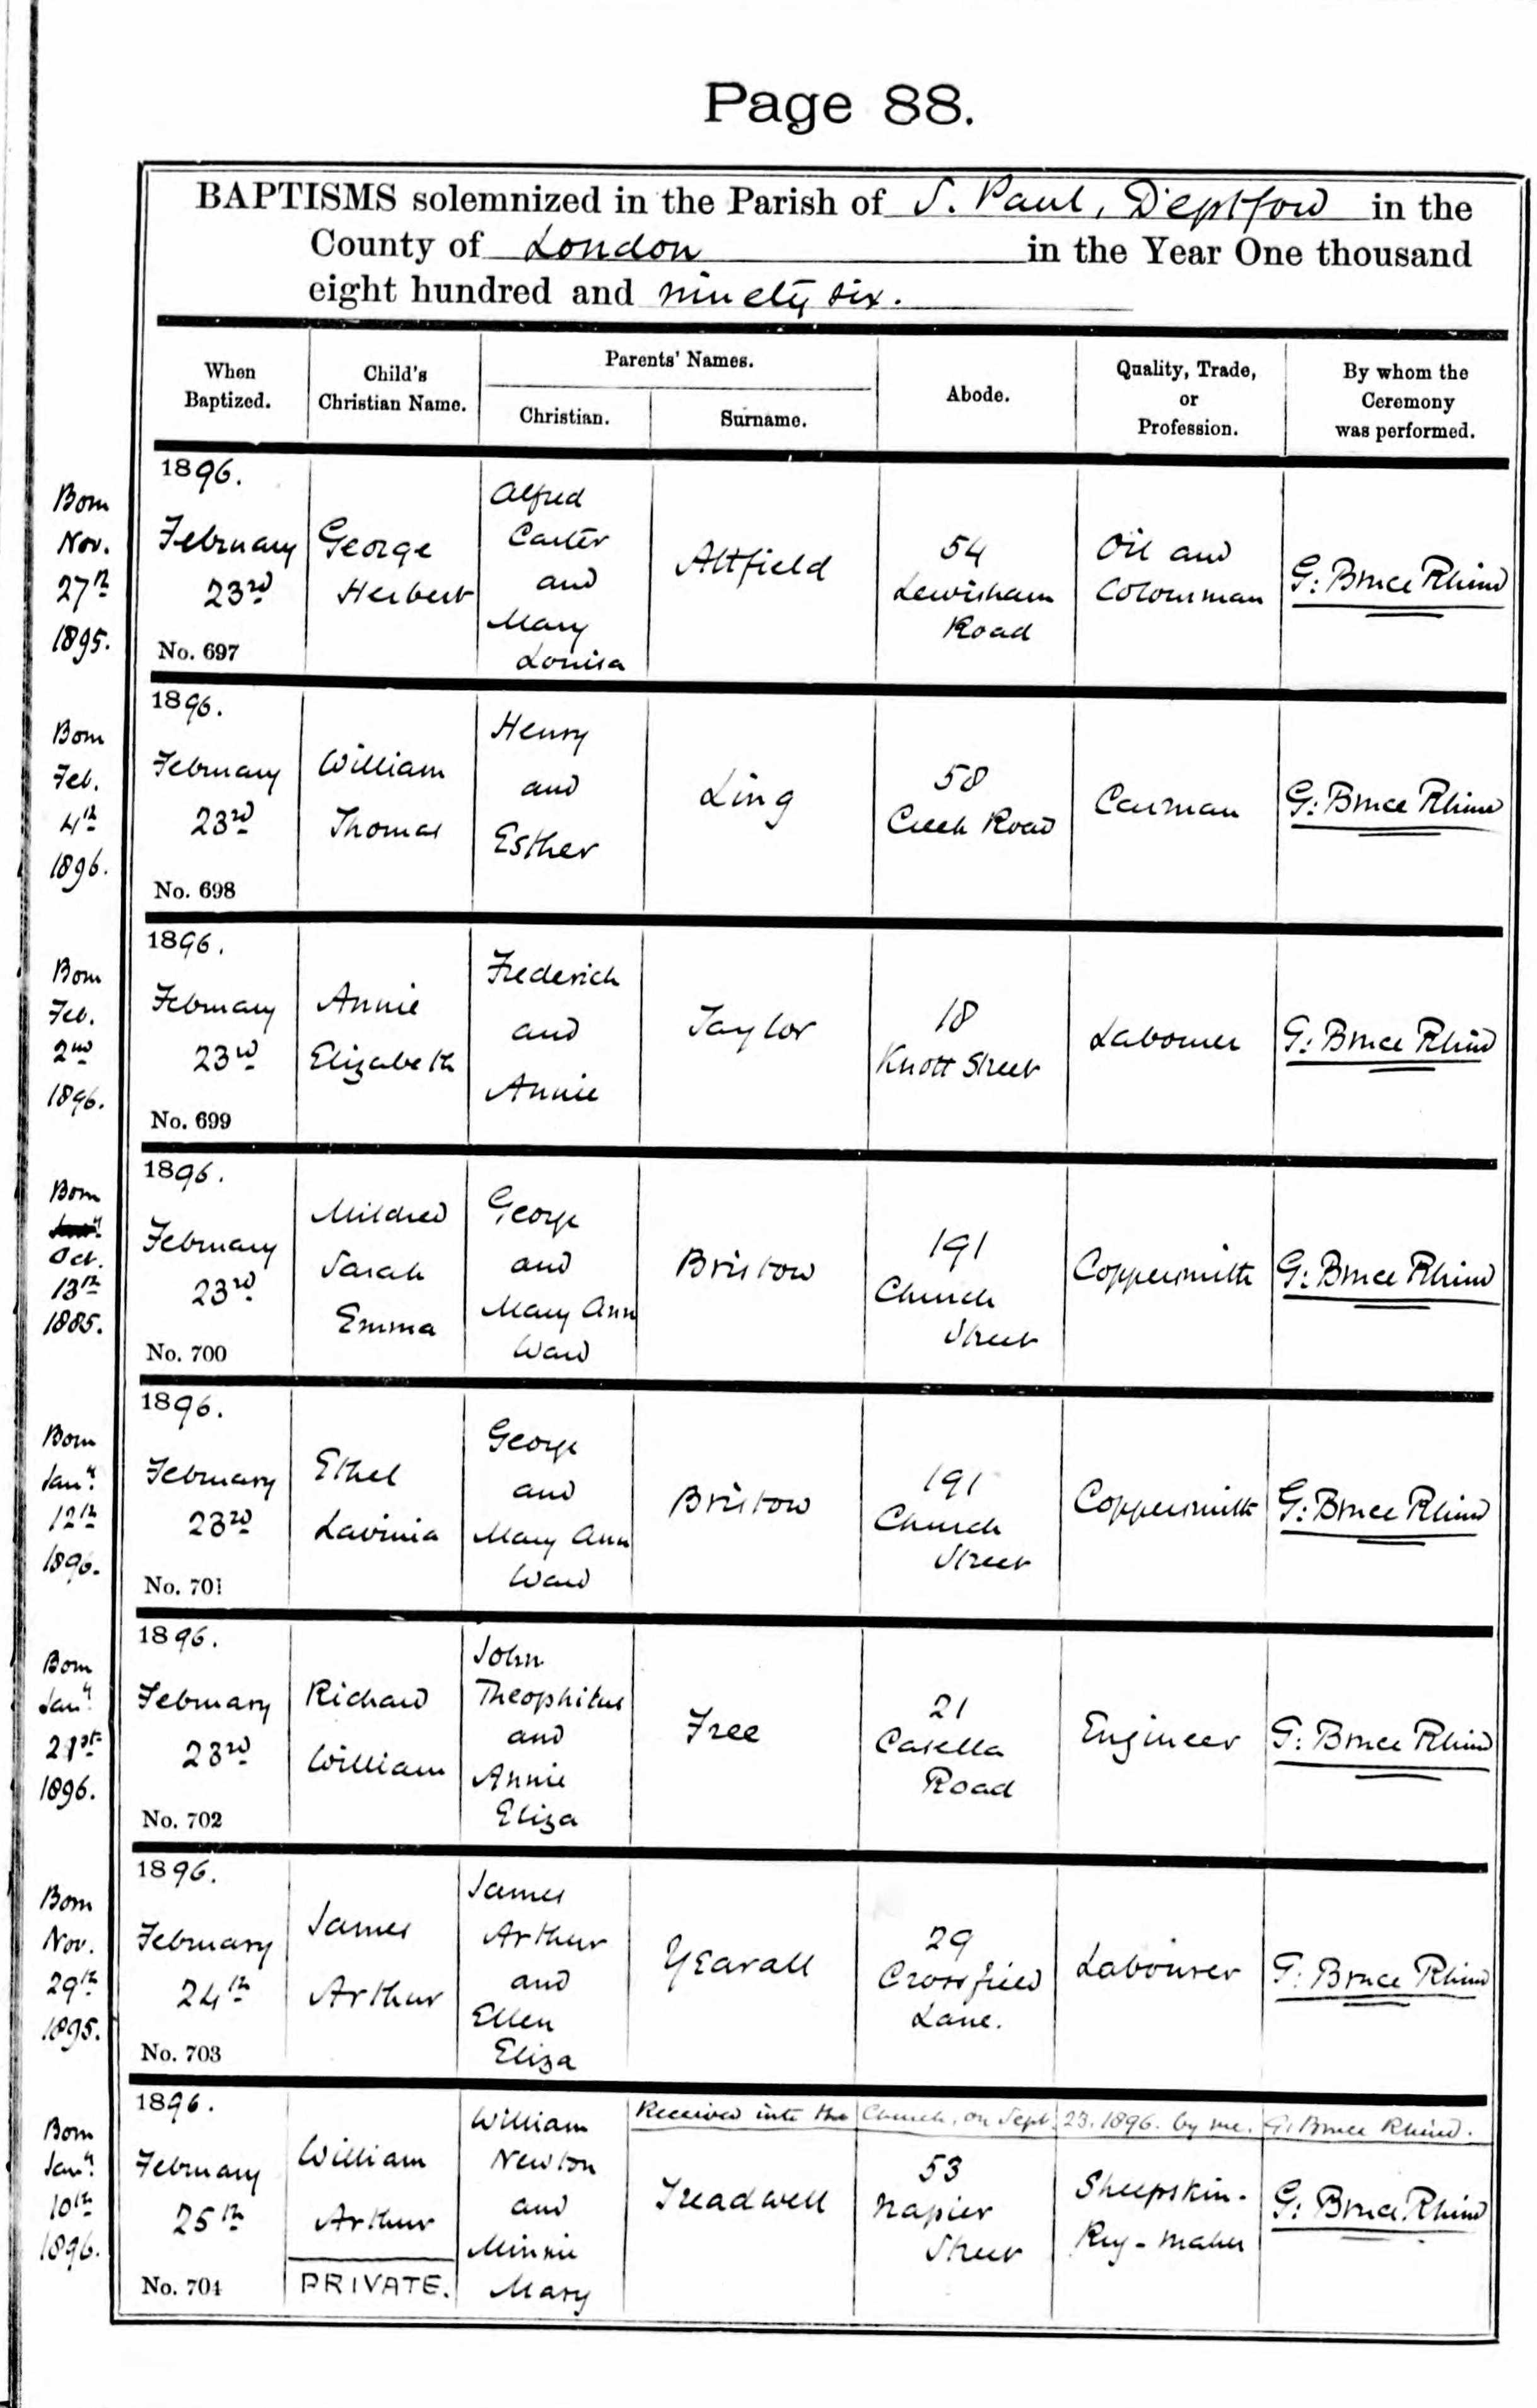 Page 88.
BAPTISMS solemnized in the Parish of S. Paul, Deptford in the
County of London in the Year One thousand
eight hundred and ninety six.
When
Baptized.
Child's
Christian Name.
Parents' Names.
Christian.
Surname.
Abode.
Quality, Trade,
or
Profession.
By whom the
Ceremony
was performed.
Born
Nov.
27th
1895.
1896.
February
23rd
No. 697
George
Herbert
Alfred
Carter
and
Mary
Louisa
Altfield
54
Lewisham
Road
Oil and
Colourman
G: Bruce Rhind
Born
Feb.
4th
1896.
1896.
February
23rd
No. 698
William
Thomas
Henry
and
Esther
Ling
58
Creek Road
Carman
G: Bruce Rhind
Born
Feb.
2nd
1896.
1896.
February
23rd
No. 699
Annie
Elizabeth
Frederick
and
Annie
Taylor
18
Knott Street
Labourer
G: Bruce Rhind
Born
Oct.
13th
1885.
1896.
February
23rd
No. 700
Mildred
Sarah
Emma
George
and
Mary Ann
Ward
Bristow
191
Church
Street
Coppersmith
G: Bruce Rhind
Born
Jany.
12th
1896.
1896.
February
23rd
No. 701
Ethel
Lavinia
George
and
Mary Ann
Ward
Bristow
191
Church
Street
Coppersmith
G: Bruce Rhind
Born
Jany.
21st
1896.
1896.
February
23rd
No. 702
Richard
William
John
Theophilus
and
Annie
Eliza
Free
21
Casella
Road
Engineer
G: Bruce Rhind
Born
Nov.
29th
1895.
1896.
February
24th
No. 703
James
Arthur
James
Arthur
and
Ellen
Eliza
Yearall
29
Crossfield
Lane.
Labourer
G: Bruce Rhind
Born
Jany.
10th
1896.
1896.
February
25th
No. 704
William
Arthur
PRIVATE.
William
Newton
and
Minnie
Mary
Received into the Church, on Sept. 23. 1896. by me. G: Bruce Rhind.
Treadwell
53
Napier
Street
Sheepskin-
Rug-maker
G: Bruce Rhind